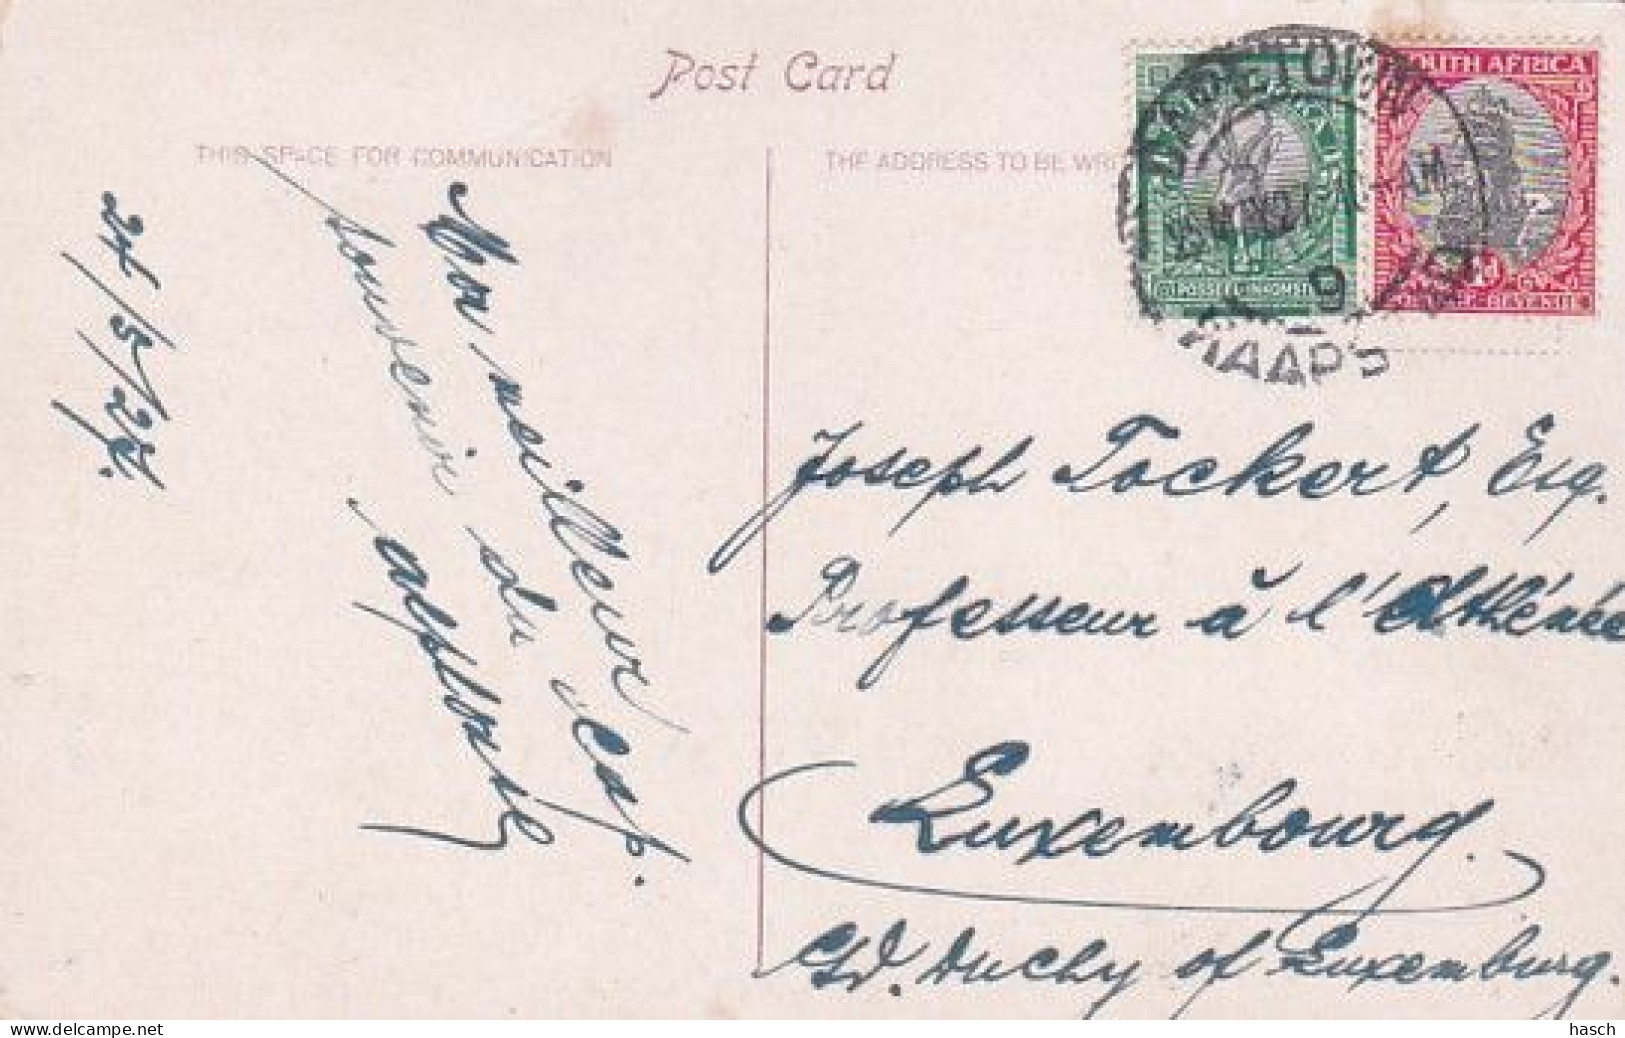 Post Card
THIS SPACE FOR COMMUNICATION
THE ADDRESS TO BE WRI
SOUTH AFRICA
POSSEEL-INKOMSTE
1d
CAPE TOWN
9
KAAPS
24/5/27.
Mon meilleur
souvenir du "Cap".
Joseph Tockert, Esq.
Professeur à l'Athénée
Luxembourg.
Gd. Duchy of Luxemburg.
www.delcampe.net
hasch